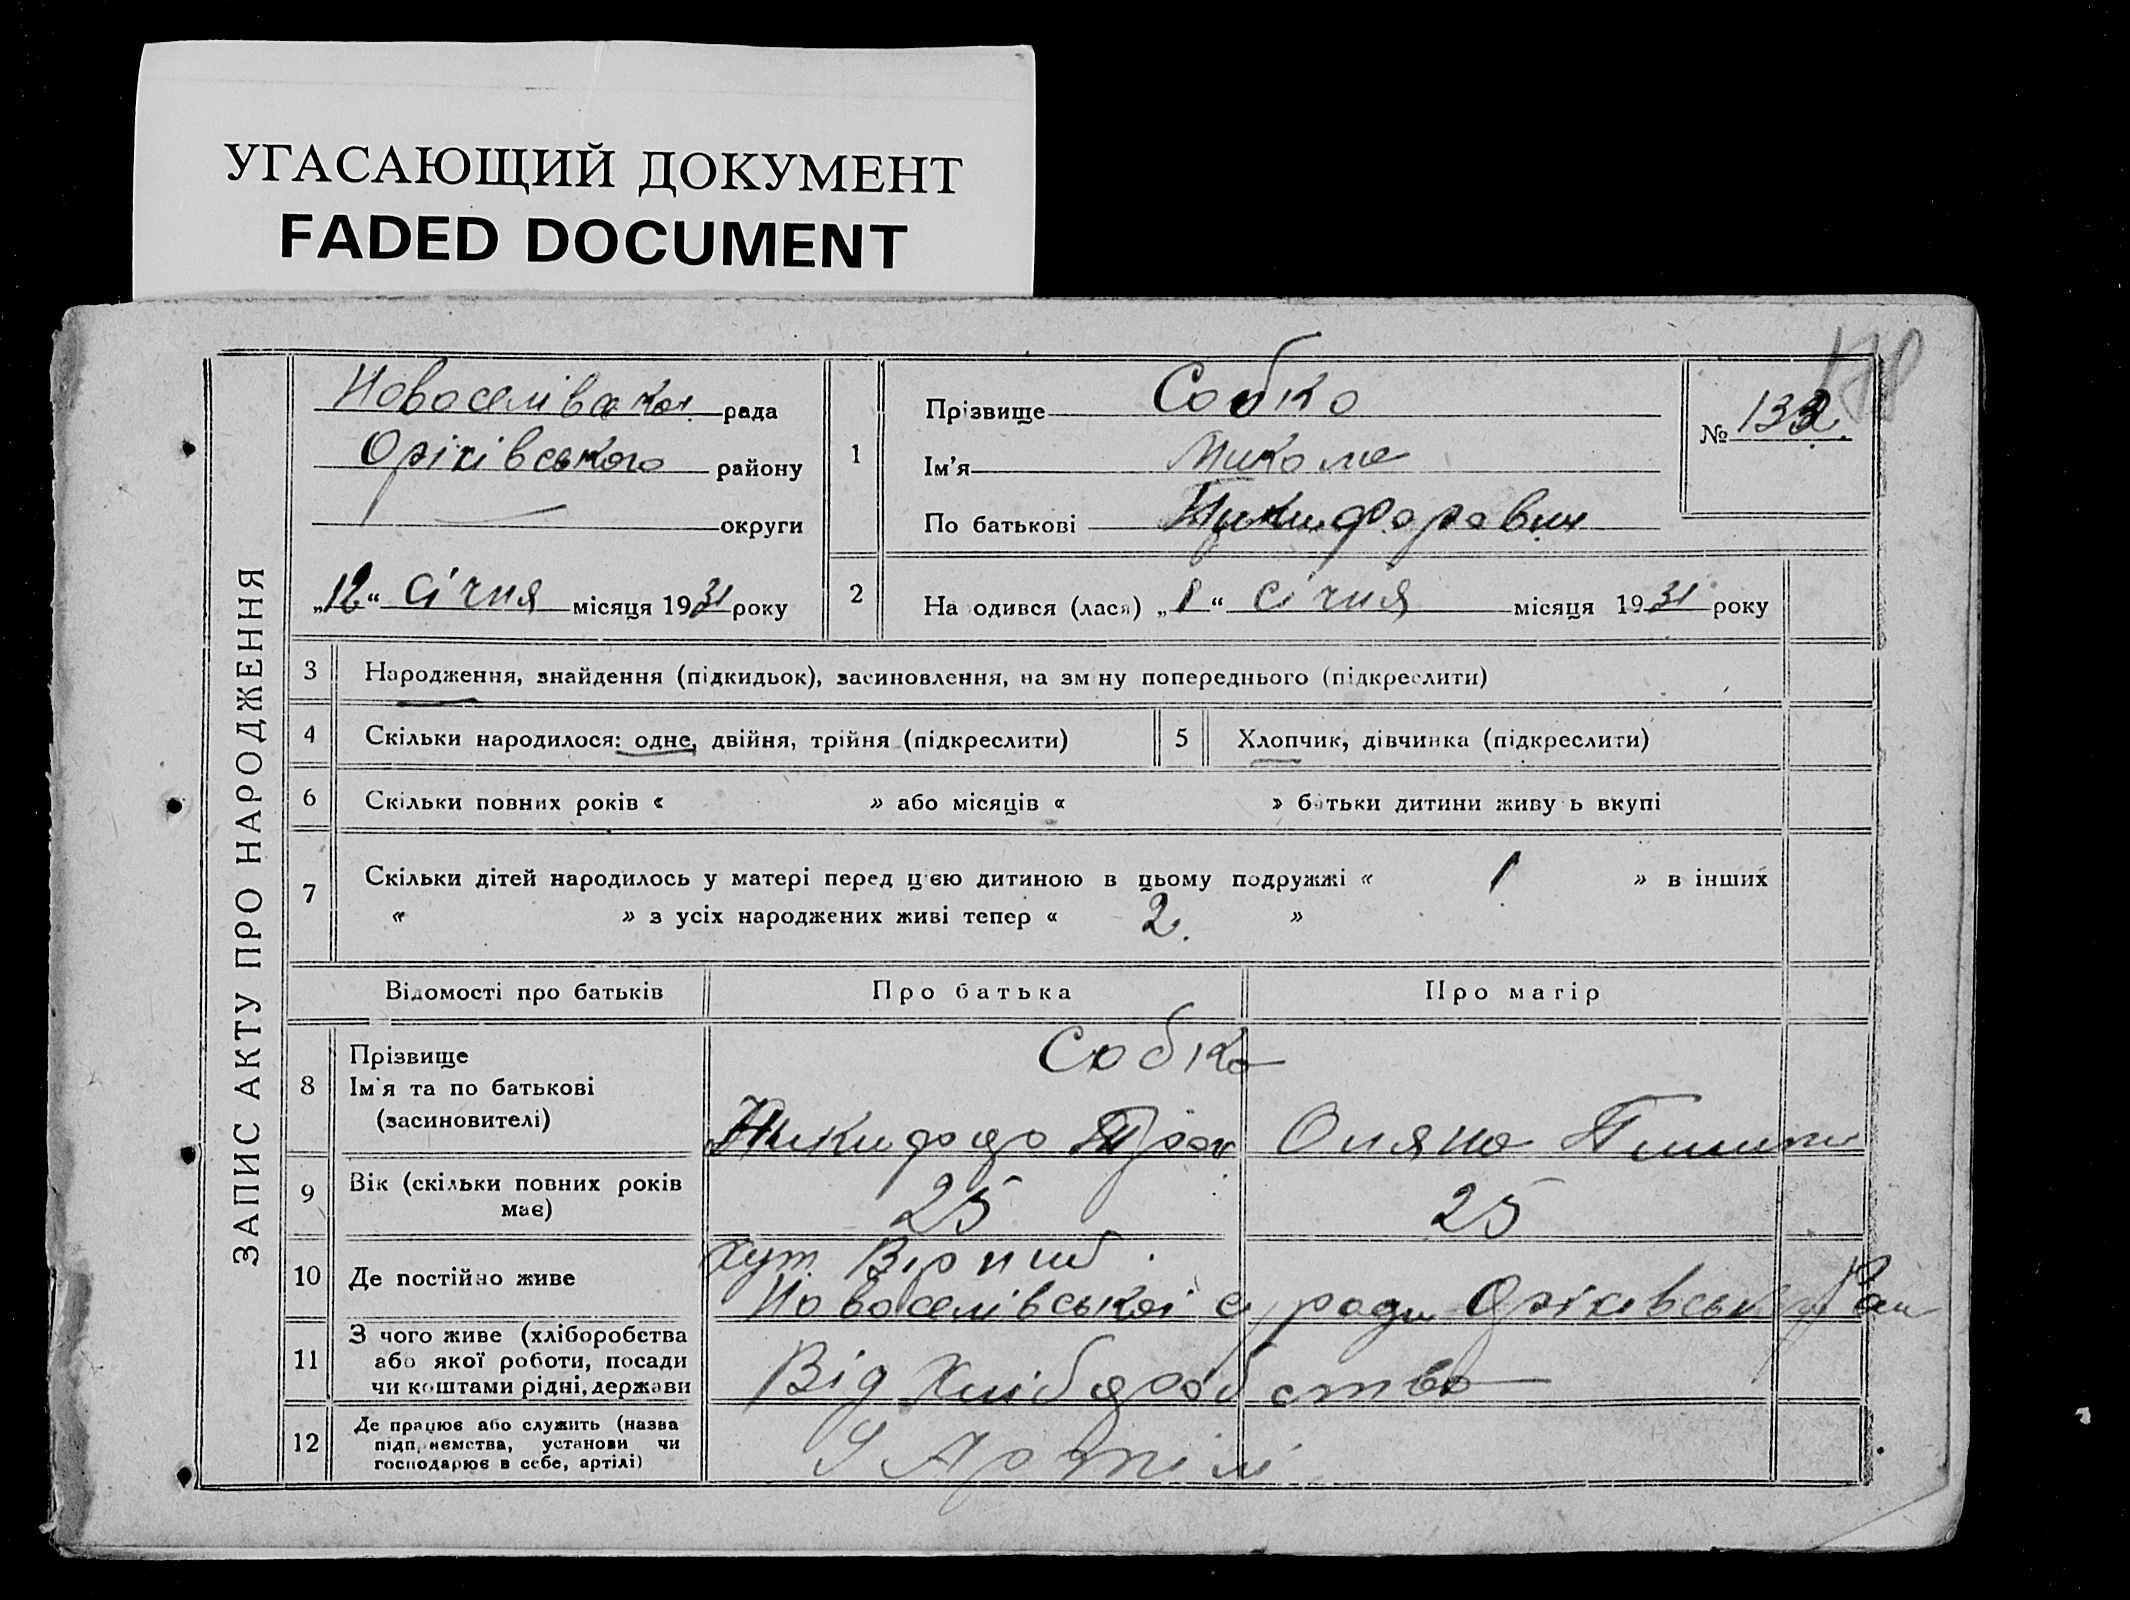 УГАСАЮЩИЙ ДОКУМЕНТ
FADED DOCUMENT
178
ЗАПИС АКТУ ПРО НАРОДЖЕННЯ
Новоселівська рада
Оріхівського району
— округи
„12“ січня місяця 1931 року
1
Прізвище Собко
Ім'я Микола
По батькові Никифоравич
№ 132.
2
На одився (лася) „1“ січня місяця 1931 року
3 Народження, знайдення (підкидьок), засиновлення, на зм ну попереднього (підкреслити)
4 Скільки народилося: одне, двійня, трійня (підкреслити)
5 Хлопчик, дівчинка (підкреслити)
6 Скільки повних років « » або місяців « » батьки дитини живу ь вкупі
7 Скільки дітей народилось у матері перед цією дитиною в цьому подружжі « 1 » в інших
« » з усіх народжених живі тепер « 2. »
Відомості про батьків Про батька Про матір
8 Прізвище
Ім'я та по батькові
(засиновителі)
Собко
Никифор Оляна
9 Вік (скільки повних років
має)
25 25
10 Де постійно живе
Хут
Новоселівської с/ради Оріхівськ Рай
11 З чого живе (хліборобства
або якої роботи, посади
чи коштами рідні, держави
Від Хліборобства
12 Де працює або служить (назва
підприємства, установи чи
господарює в себе, артілі)
У Артілі